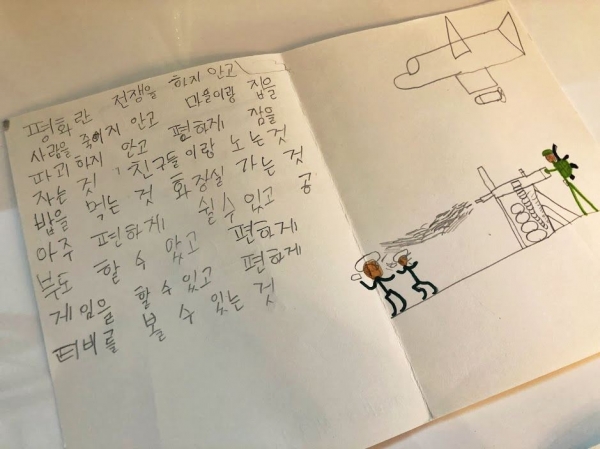 평화란 전쟁을 하지 안고
사람을 죽이지 안고 마을이랑 집을
파괴하지 안고 편하게 잠을
자는 것, 친구들이랑 노는것
밥을 먹는 것 화장실 가는 것
아주 편하게 쉴 수 있고 공
부도 할 수 있고 편하게
게임을 할 수 있고 편하게
티비를 볼 수 있는 것